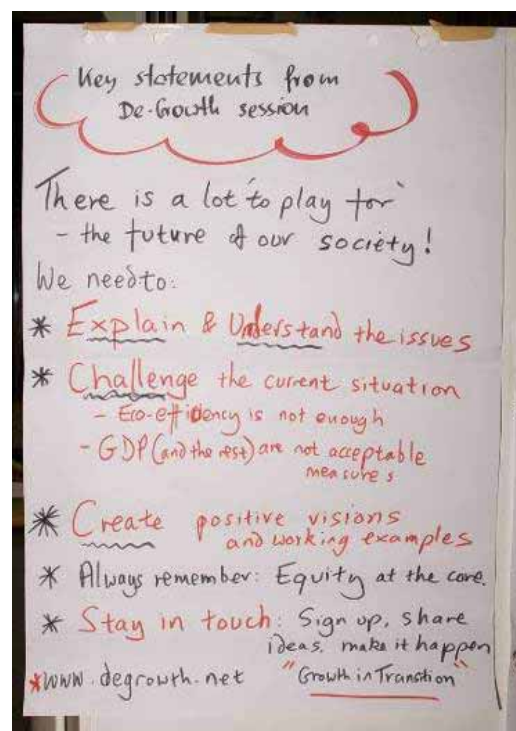 Key statements from
De-Growth session
There is a lot "to play for"
- the future of our society!
We need to:
* Explain & Understand the issues
* Challenge the current situation
- Eco-efficiency is not enough
- GDP (and the rest) are not acceptable
measures
* Create positive visions
and working examples
* Always remember: Equity at the core.
* Stay in touch: Sign up, share
ideas, make it happen
*www.degrowth.net "Growth in Transition"